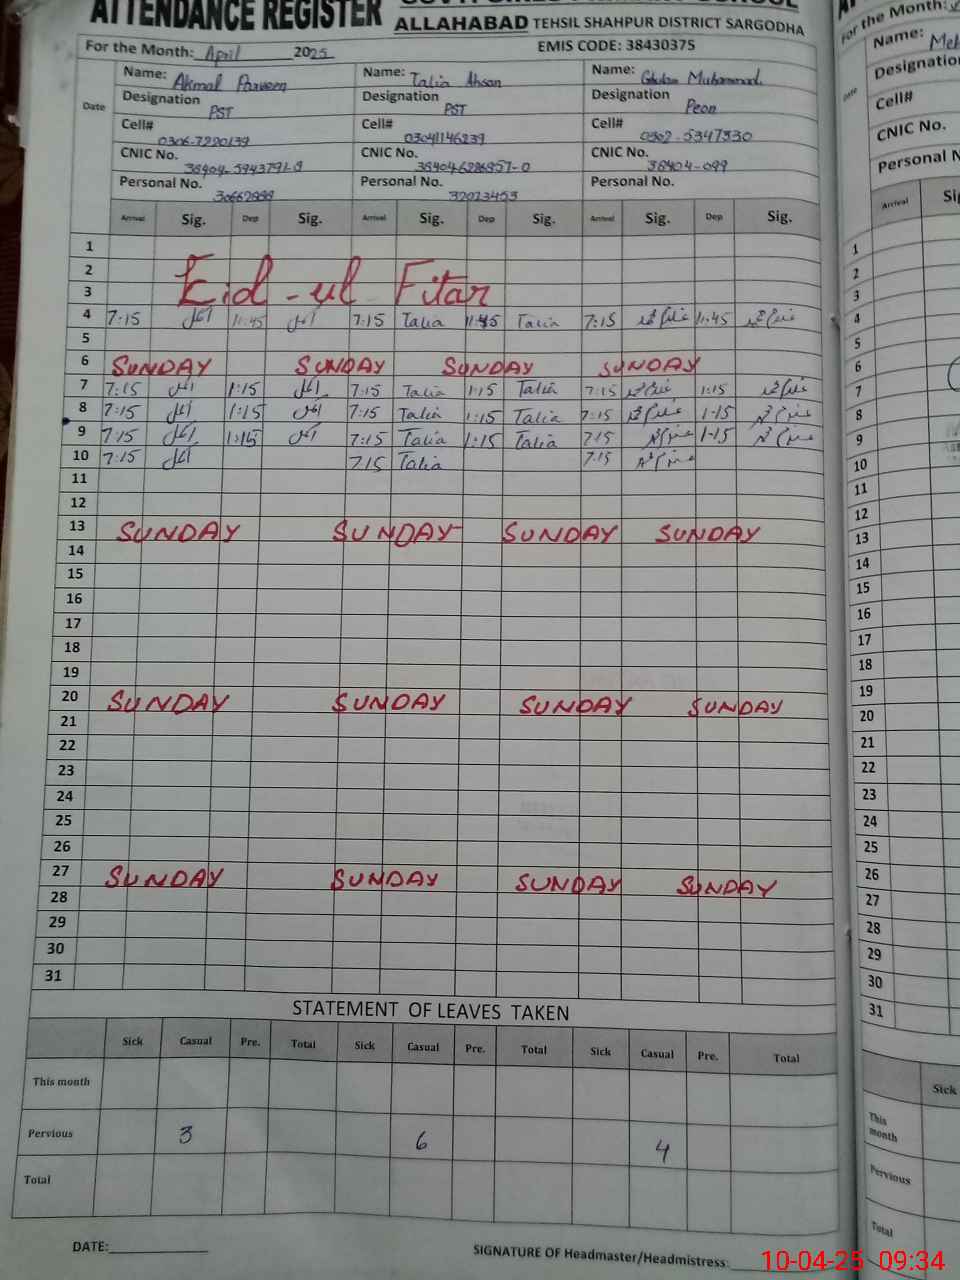 ATTENDANCE REGISTER
ALLAHABAD TEHSIL SHAHPUR DISTRICT SARGODHA
For the Month: April 2025 EMIS CODE: 38430375
Date
Name: Akmal Parveen Name: Talia Ahsan Name: Ghulam Muhammad
Designation Designation Designation
PST PST Peon
Cell# Cell# Cell#
0306-7220139 03041146239 0302-5347330
CNIC No. CNIC No. CNIC No.
38404-099
Personal No. Personal No. Personal No.
Arrival Sig. Dep Sig. Arrival Sig. Dep Sig. Arrival Sig. Dep Sig.
1
2
3
Eid-ul Fitar
4 7:15 اکمل 11:45 اکمل 7:15 Talia 11:45 Talia 7:15 غلام محمد 11:45 غلام محمد
5
6 SUNDAY SUNDAY SUNDAY SUNDAY
7 7:15 اکمل 1:15 اکمل 7:15 Talia 1:15 Talia 7:15 غلام محمد 1:15 غلام محمد
8 7:15 اکمل 1:15 اکمل 7:15 Talia 1:15 Talia 7:15 غلام محمد 1-15 غلام محمد
9 7:15 اکمل 1:15 اکمل 7:15 Talia 1:15 Talia 7:15 غلام محمد 1-15 غلام محمد
10 7:15 اکمل 7:15 Talia 7:15 غلام محمد
11
12
13 SUNDAY SUNDAY SUNDAY SUNDAY
14
15
16
17
18
19
20 SUNDAY SUNDAY SUNDAY SUNDAY
21
22
23
24
25
26
27 SUNDAY SUNDAY SUNDAY SUNDAY
28
29
30
31
STATEMENT OF LEAVES TAKEN
Sick Casual Pre. Total Sick Casual Pre. Total Sick Casual Pre. Total
This month
Pervious 3 6 4
Total
DATE: SIGNATURE OF Headmaster/Headmistress:
For the Month:
Name:
Date
Cell#
CNIC No.
Arrival
1
2
3
4
5
6
7
8
9
10
11
12
13
14
15
16
17
18
19
20
21
22
23
24
25
26
27
28
29
30
31
Sick
This
month
Pervious
Total
10-04-25 09:34